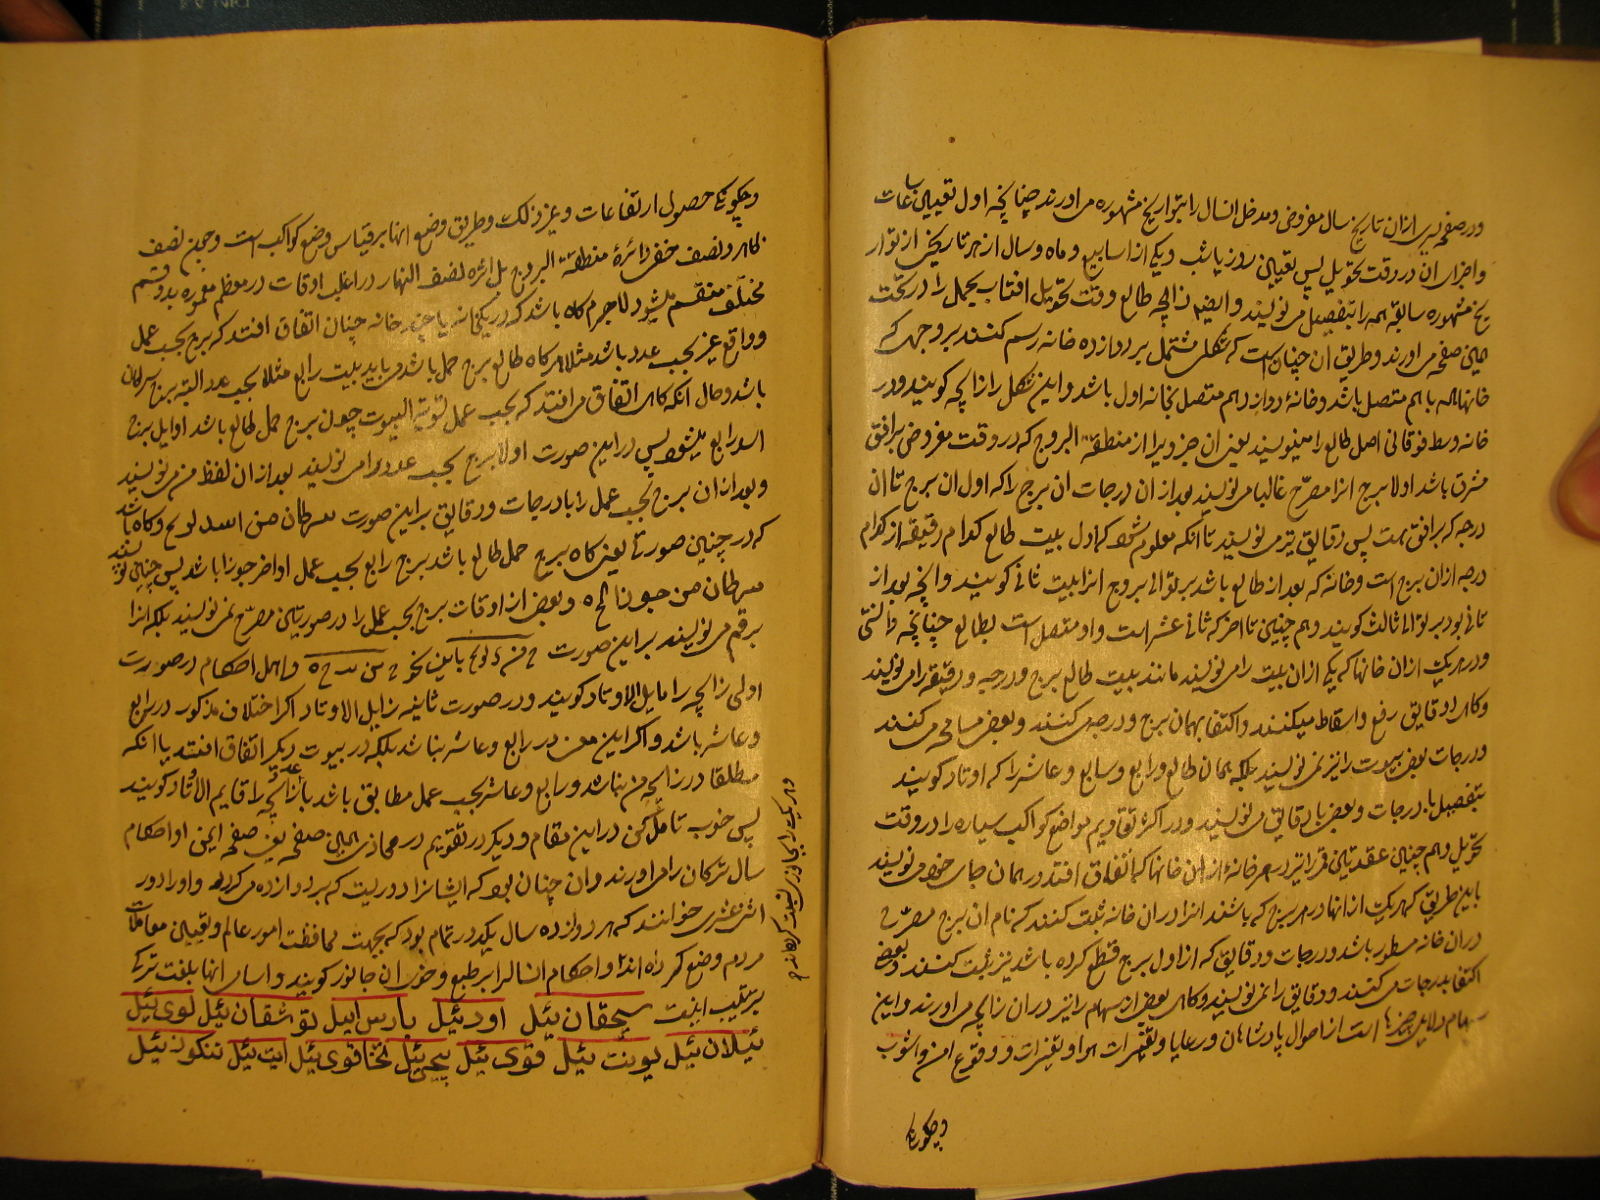 ودر صفحه یسری ازان تاریخ سال مفروض ومدخل انسال را بتواریخ مشهوره می اورند چنانچه اول تعیین ساعات
واجزای ان در وقت تحویل پس تعیین روز یا شب ویکی از اسابیع وماه وسال از هر تاریخی از توار
یخ مشهوره سابقه همه را بتفصیل می نویسند وایضا زایچه طالع وقت تحویل افتاب بحمل را در تحت
همین صفحه می اورند وطریق ان چنان است که شکلی مشتمل بر دوازده خانه رسم کنند بر وجهی که
خانها همه باهم متصل باشد وخانهٔ دوازدهم متصل بخانه اول باشد واین شکل را زایچه کویند ودر
خانه وسط فوقانی اصل طالع را مینویسند یعنی ان جزویرا از منطقة البروج که در وقت مفروض بر افق
مشرق باشد اولا برج انرا مصرح غالبا می نویسند بعد ازان درجات ان برج را که اول ان برج تا ان
درجه که بر افق است پس دقایق نیز می نویسند تا انکه معلوم شود که اول بیت طالع کدام دقیقه از کدام
درجه ازان برج است وخانه که بعد از طالع باشد بر توالی بروج انرا بیت ثانی کویند وانچه بعد از
ثانی بود بر توالی ثالث کویند وهم چنین تا اخر که ثانی عشر است واو متصل است بطالع چنانچه دانستی
ودر هریک ازان خانها که یکی ازان بیت را می نویسند مانند بیت طالع برج ودرجه ودقیقه را می نویسند
وکاهی دقایق رفع واسقاط میکنند واکتفا بهمان برج ودرجه می کنند وبعضی مسامحه می کنند
ودرجات بعض بیوت را نیز نمی نویسند بلکه همان طالع ورابع وسابع وعاشر را که اوتاد کویند
بتفصیل با درجات وبعض با دقایق می نویسند ودر اکثر تقاویم مواضع کواکب سیاره را در وقت
تحویل وهم چنین عقدتین قمر را نیز در هر خانهٔ از این خانها که اتفاق افتد در همان جای خود می نویسند
باین طریق که هریک از انها در هر برج که باشند انرا دران خانه ثبت کنند که نام ان برج مصرح
دران خانه مسطور باشد ودرجات ودقایق که از اول برج قطع کرده باشد نیز ثبت کنند وبعضی
اکتفا بدرجات می کنند ودقایق را نمی نویسند وکاهی بعضی از سهام را نیز دران زایچه می اورند واین
سهام دلایل است از احوال پادشاهان ورعایا وتغییرات هوا ووقوع امن واشوب
وچکونکی
وچکونکی حصول ارتفاعات وغیر ذلک وطریق وضع انها بر قیاس وضع کواکب است وچون نصف
ظاهر ونصف خفی دائرهٔ منطقة البروج بدائرهٔ نصف النهار در اغلب اوقات در معظم معموره بدو قسم
مختلف منقسم میشود لاجرم کاه باشد که در یکخانه یا چند خانه چنان اتفاق افتد که برج بحسب عمل
وواقع غیر بحسب عدد باشد مثلا هر کاه طالع برج حمل باشد می باید بیت رابع مثلا بحسب عدد البته برج سرطان
باشد وحال انکه کاهی اتفاق می افتد که بحسب عمل تسویة البیوت چون برج حمل طالع باشد اوایل برج
اسد رابع میشود پس در این صورت اولا برج بحسب عدد را می نویسند بعد ازان لفظ من می نویسند
وبعد ازان برج بحسب عمل را با درجات ودقایق براین صورت سرطان من اسد وکاه باشد
که در چنین صورتی یعنی کاه برج حمل طالع باشد برج رابع بحسب عمل اواخر جوزا باشد پس چنین نویسند
سرطان من جوزا وبعض از اوقات برج بحسب عمل را در صورتین مصرح نمی نویسند بلکه انرا
برقم می نویسند براین صورت واهل احکام در صورت
اولی زایچه را مایل الاوتاد کویند ودر صورت ثانیه زایل الاوتاد اکر اختلاف مذکور در رابع
وعاشر باشد واکر این معنی در رابع وعاشر نباشد بلکه در بیوت دیکر اتفاق افتد یا انکه
مطلقا در زایچه من نباشد ورابع وعاشر بحسب عمل مطابق باشد با عدد زایچه را قایم الاوتاد کویند
پس خوب تامل کن در این مقام ودیکر در تقویم در محاذی همین صفحه یعنی صفحه ایمن او احکام
سال ترکان را می اورند وان چنان بود که ایشانرا دوریست که بر دوازده می کردد واورا دور
اثنی عشری خوانند که هر دوازده سال یکدور تمام بود که بجهت محافظت امور عالم وتعیین معاملات
مردم وضع کرده اند واحکام انسالرا بر طبع وخوی ان جانور کویند واسامی انها بلغت ترکی
بترتیب اینست سیچقان ئیل اودئیل بارس ئیل توشقان ئیل لوی ئیل
ئیلان ئیل یونت ئیل قوی ئیل پیچی ئیل تخاقوی ئیل ایت ئیل تنکوز ئیل